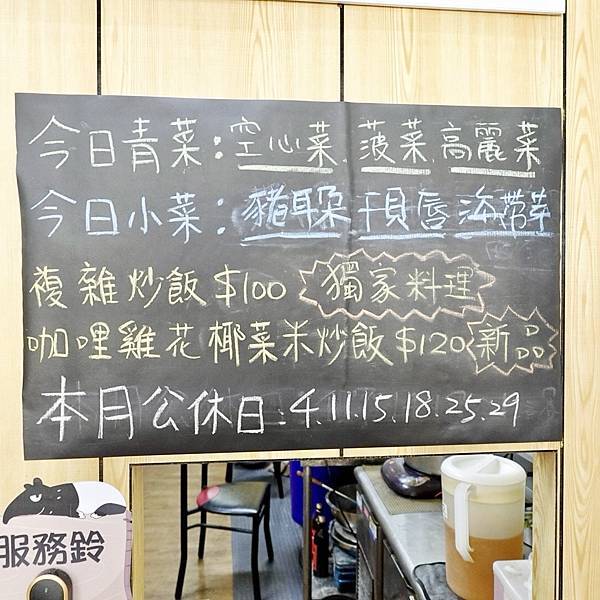 今日青菜:空心菜 菠菜 高麗菜
今日小菜:豬耳朵 干貝唇 海帶芽
複雜炒飯$100 獨家料理
咖哩雞花椰菜米炒飯$120 新品
本月公休日:4.11.15.18.25.29
服務鈴